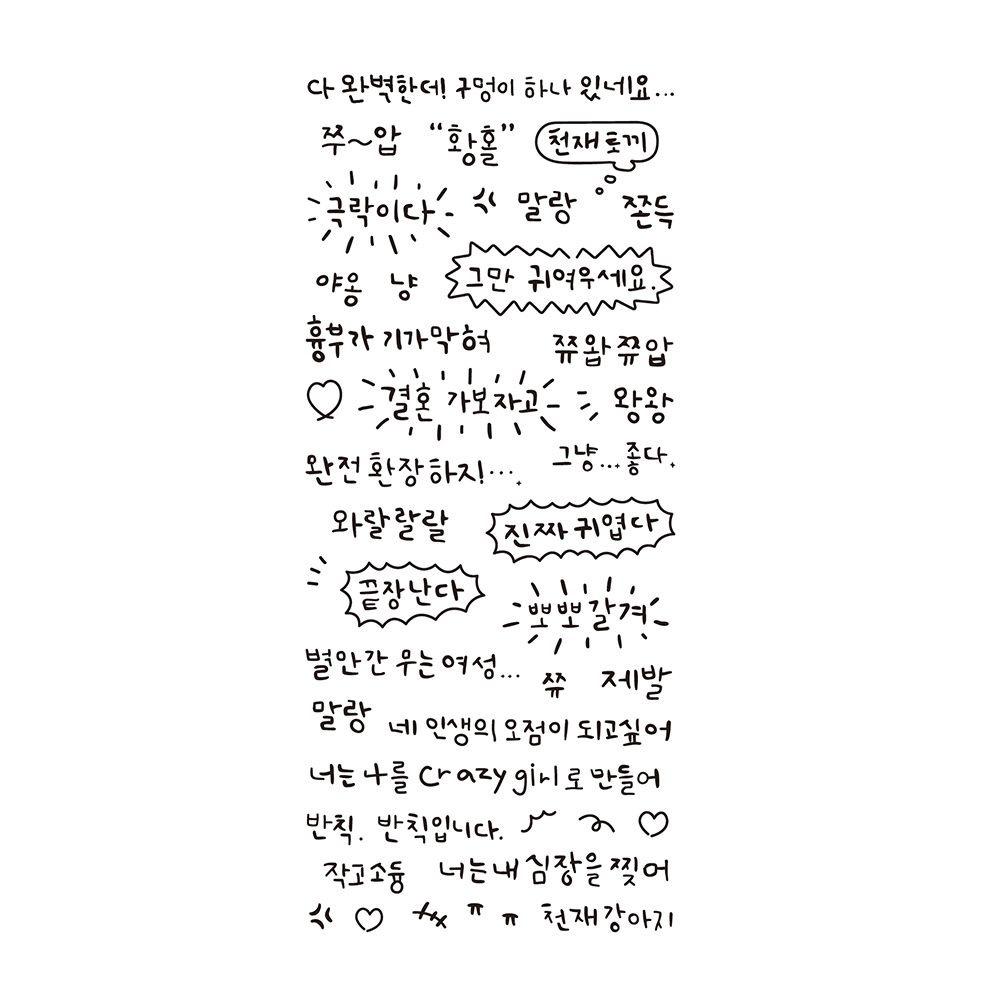 다 완벽한데! 구멍이 하나 있네요...
쭈~압 "황홀" 천재 토끼
극락이다 말랑 쫀득
야옹 냥 그만 귀여우세요.
흉부가 기가막혀 쮸왑 쮸압
결혼 가보자고 왕왕
완전 환장하지!.... 그냥...좋다.
와랄랄랄 진짜 귀엽다
끝장난다 뽀뽀갈겨
별안간 우는 여성... 쮸 제발
말랑 네 인생의 오점이 되고싶어
너는 나를 crazy girl로 만들어
반칙. 반칙입니다.
작고소듕 너는 내 심장을 찢어
ㅠ ㅠ 천재강아지